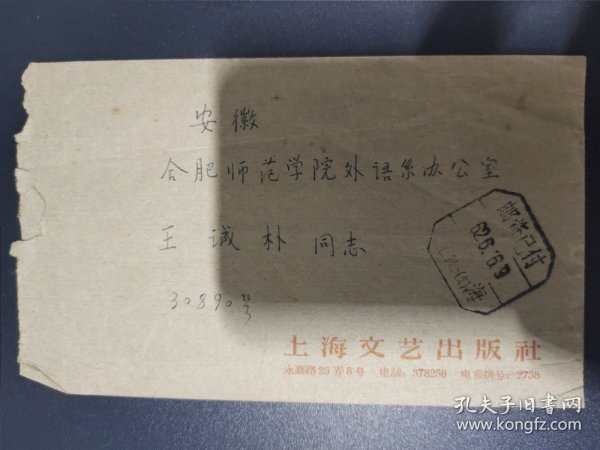 安徽
合肥师范学院外语系办公室
王诚朴 同志
30890号
邮资已付
62.6.6.9
上海
上海文艺出版社
永嘉路25弄8号 电话：378250 电报挂号：2738
孔夫子旧书网
www.kongfz.com